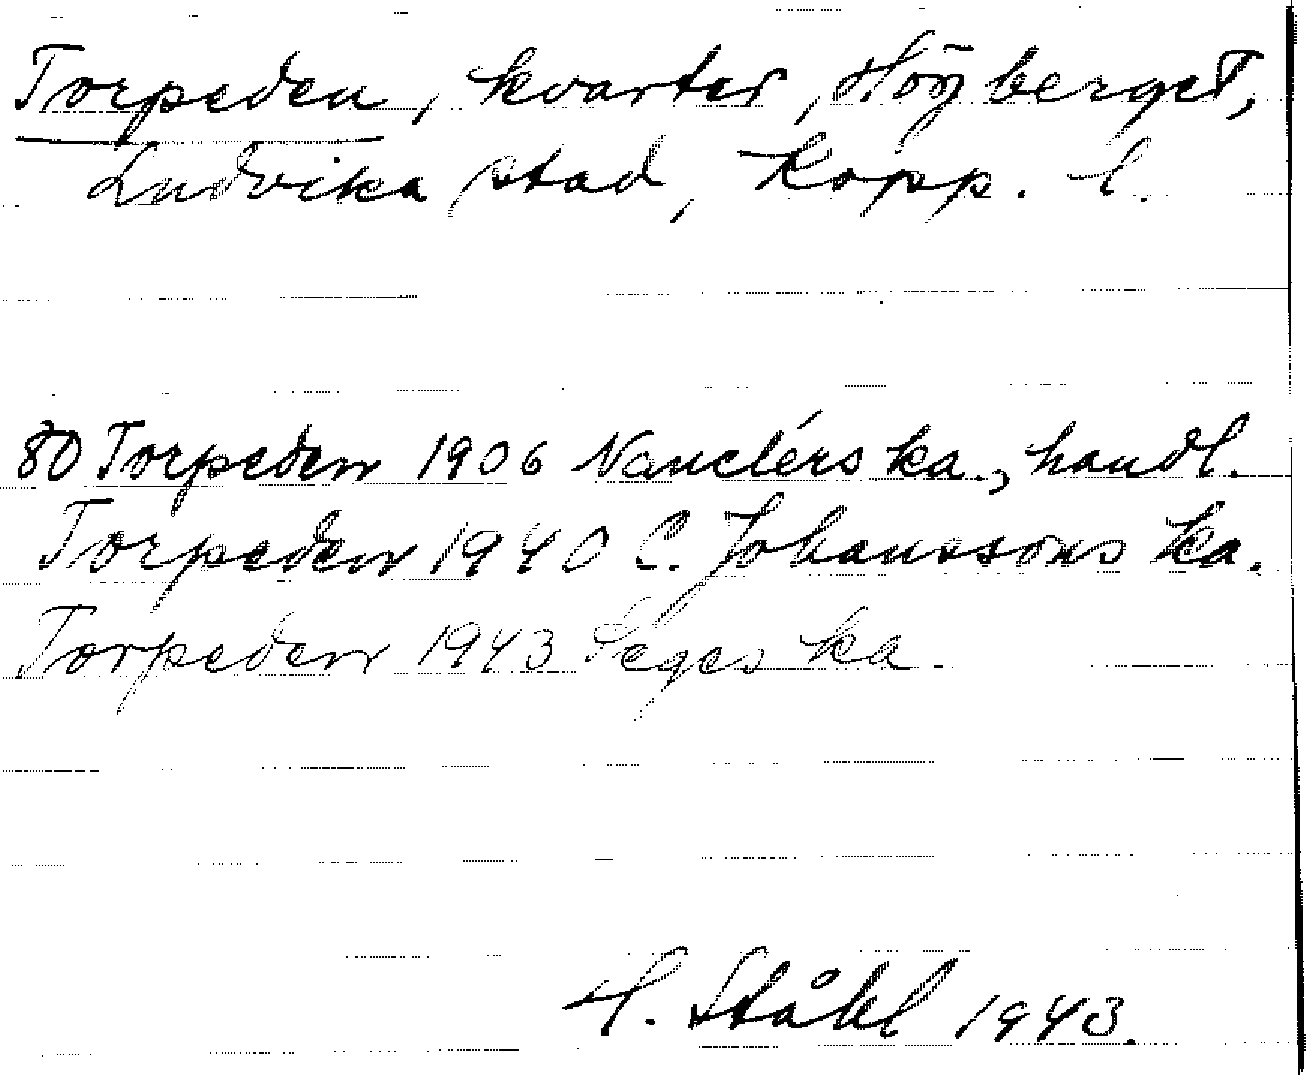 Torpeden, kvarter, Högberget,
Ludvika stad, Kopp. l.
80 Torpeden 1906 Nanclérs ka., handl.
Torpeden 1940 C. Johanssons ka.
Torpeden 1943 Seges ka.
H. Ståhl 1943.